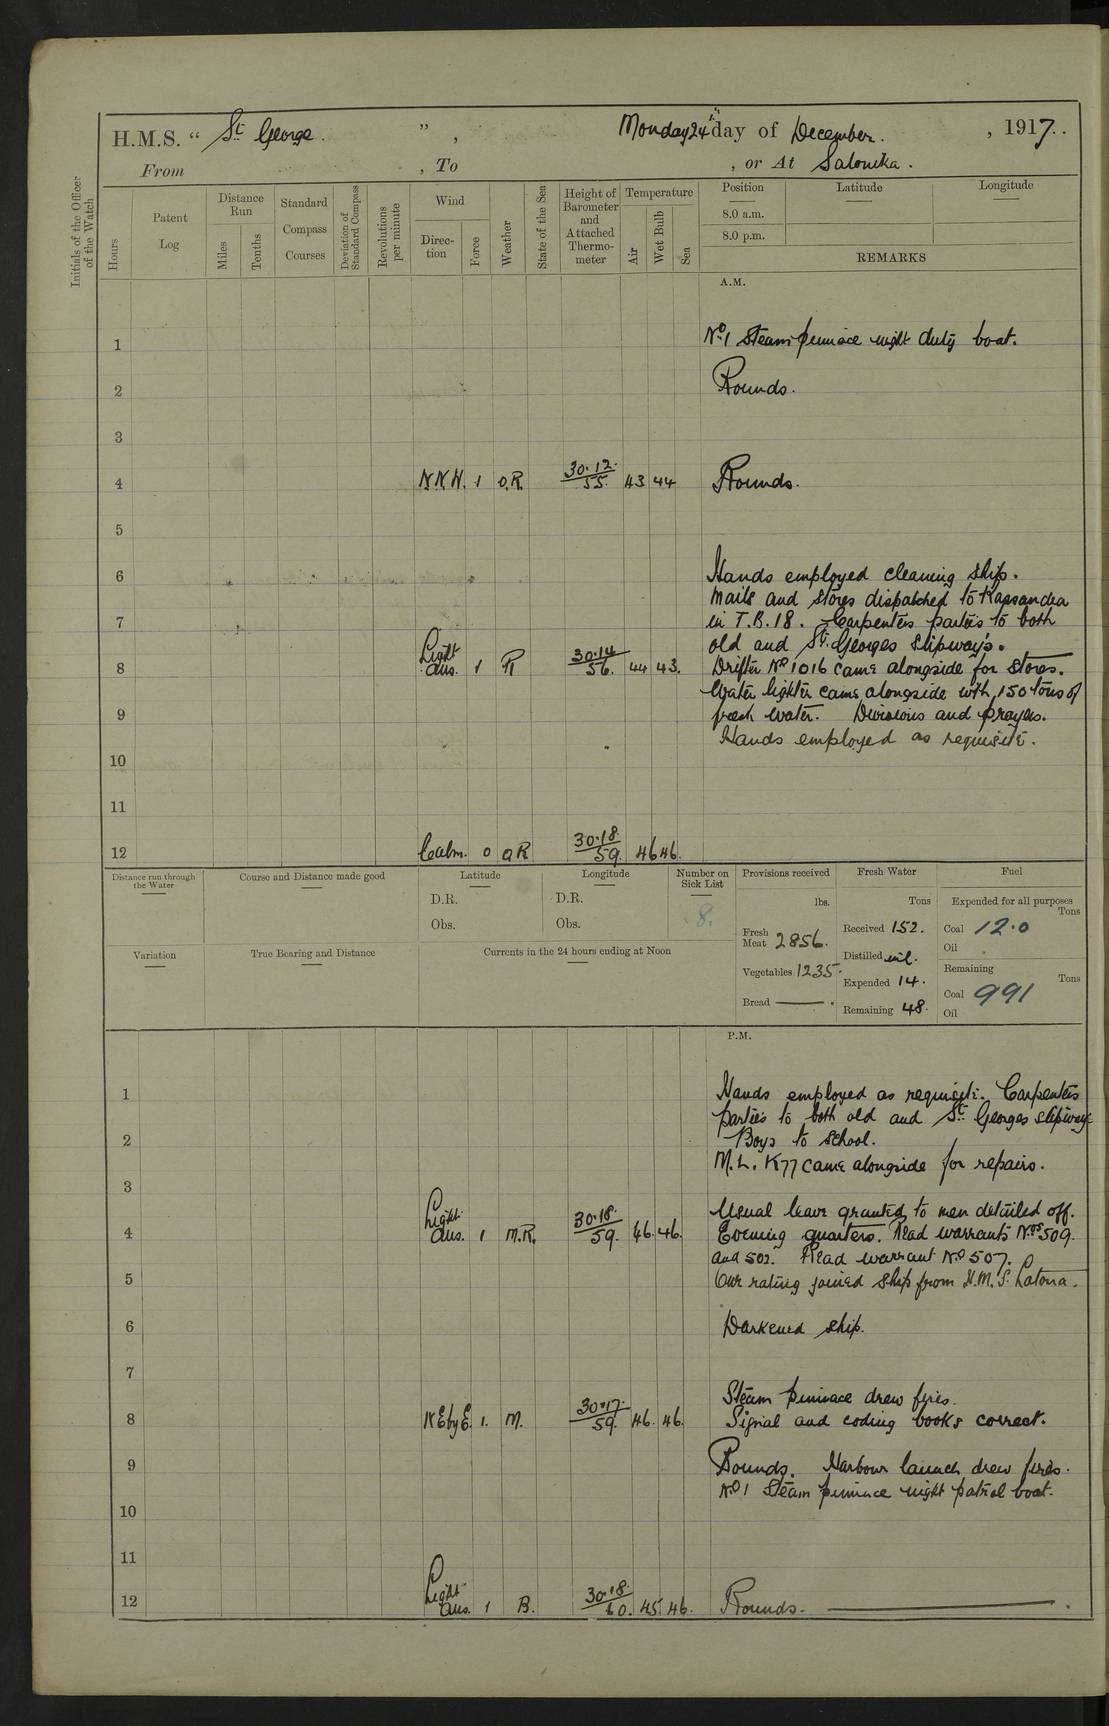 H.M.S. " St George. " , Monday 24th day of December. , 1917..
From , To , or At Salonika.
Initials of the Officer of the Watch
Hours
Patent Log
Distance Run
Miles
Tenths
Standard Compass Courses
Deviation of Standard Compass
Revolutions per minute
Wind
Direction
Force
Weather
State of the Sea
Height of Barometer and Attached Thermometer
Temperature
Air
Wet Bulb
Sea
Position
Latitude
Longitude
8.0 a.m.
8.0 p.m.
REMARKS
A.M.
1 No. 1 Steam pinnace night duty boat.
2 Rounds.
3
4 N.N.W. 1 O.R. 30.12. 55. 43 44 Rounds.
5
6 Hands employed cleaning ship.
Mails and stores dispatched to Kassandra
7 in T.B. 18. Carpenters parties to both
old and St. Georges Slipways.
8 Light Airs. 1 R 30.14 56. 44 43. Drifter No 1016 came alongside for stores.
Water lighter came alongside with 150 tons of
9 fresh water. Divisions and prayers.
Hands employed as requisite.
10
11
12 Calm. 0 O R 30.18. 59. 46 46.
Distance run through the Water
Course and Distance made good
Latitude
D.R.
Obs.
Longitude
D.R.
Obs.
Number on Sick List
8.
Provisions received
lbs.
Fresh Meat 2856.
Vegetables 1235.
Bread ——.
Fresh Water
Tons
Received 152.
Distilled nil.
Expended 14.
Remaining 48.
Fuel
Expended for all purposes
Tons
Coal 12.0
Oil
Remaining
Tons
Coal 991
Oil
Variation
True Bearing and Distance
Currents in the 24 hours ending at Noon
P.M.
1 Hands employed as requisite. Carpenters
parties to both old and St. Georges slipways
2 Boys to school.
M.L. K77 came alongside for repairs.
3
Usual leave granted to men detailed off.
4 Light Airs. 1 M.R. 30.18. 59. 46. 46. Evening quarters. Read warrants Nos 509.
and 502. Read warrant No 507.
5 One rating joined ship from H.M.S. Latona.
6 Darkened ship.
7
Steam pinnace drew fires.
8 NE by E. 1. M. 30.17. 59. 46. 46. Signal and coding books correct.
9 Rounds. Harbour launch drew fires.
No 1 Steam pinnace night patrol boat.
10
11
12 Light Airs. 1 B. 30.18. 60. 45. 46. Rounds. ——.